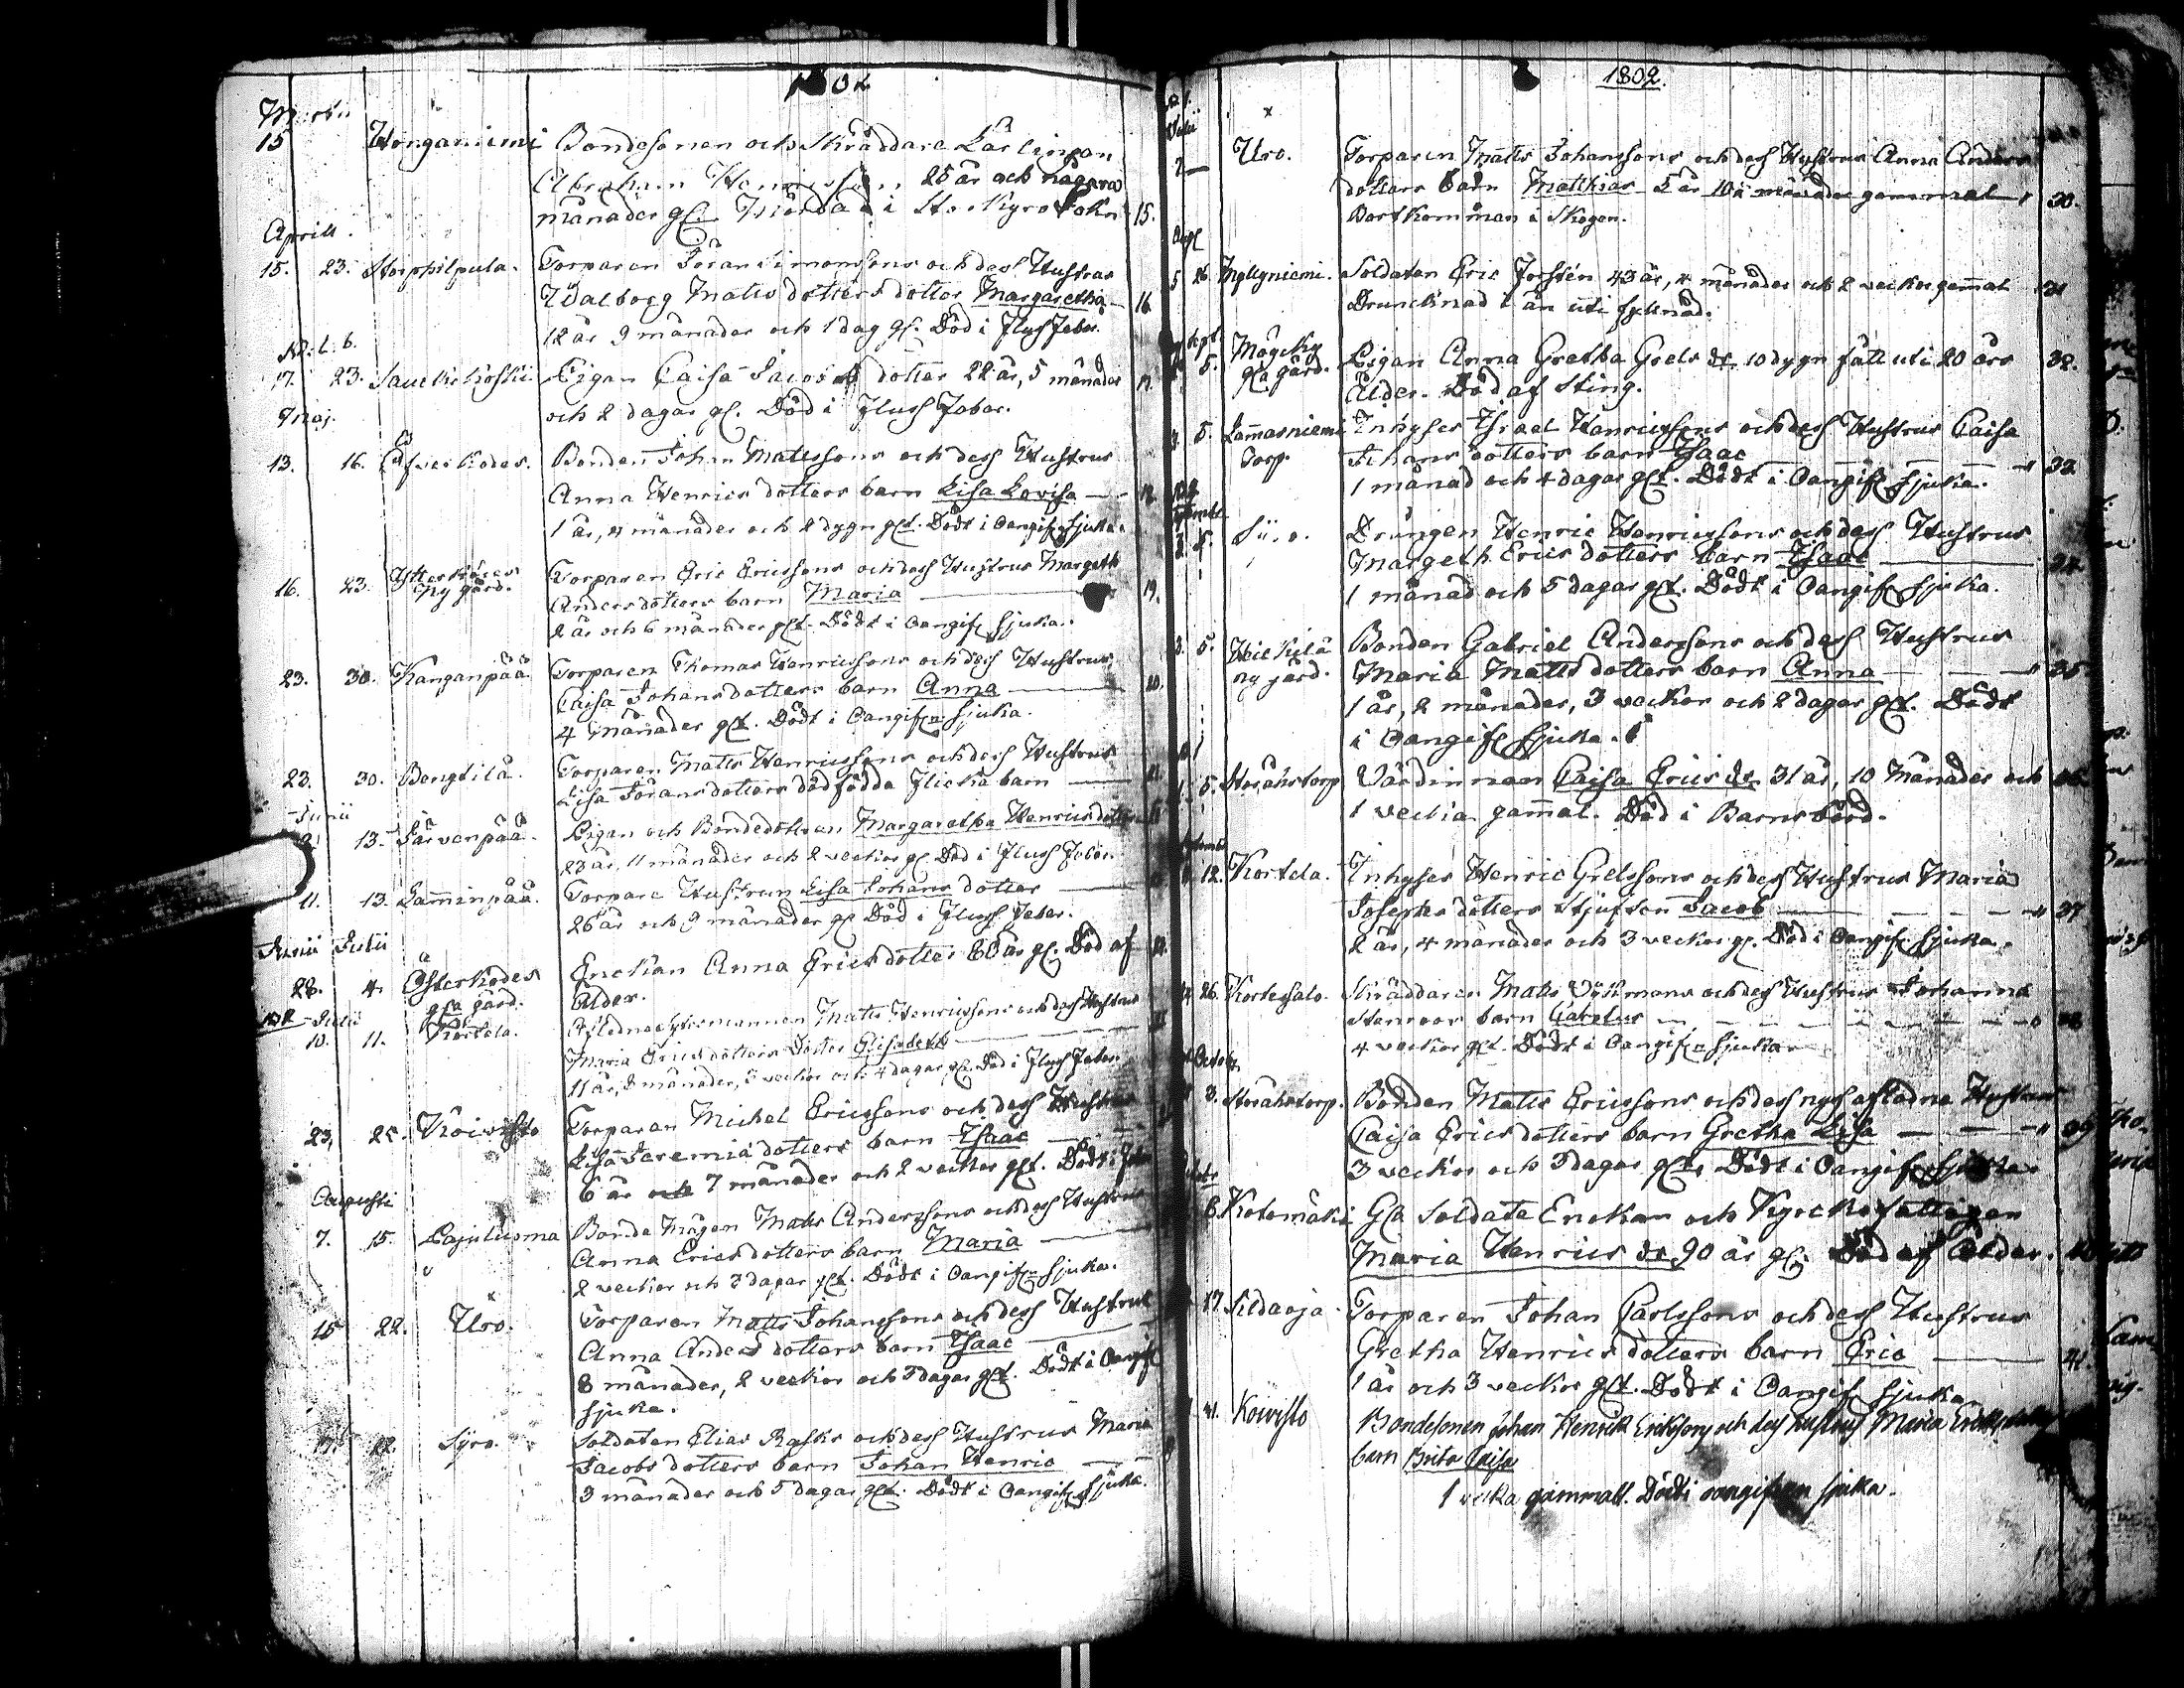 1802
Martii
15 Honganiemi Bondesonen och Skräddare Lärlingen
Abraham Henricsson 25 år och några
månader gl. Mördad i Storkyro Sokn 15.
Aprill.
15. 23. Storpilpula. Torparen Jöran Simonsons och dess Hustrus
Walborg Matts dotters dotter Margaretha 16.
12 år 9 månader och 1 dag gl. Död i Fluss Feber.
17. 23. Saukikoski Pigan Caisa Jacobs dotter 22 år, 5 månader 17.
och 2 dagar gl. Död i Fluss Feber.
Maj.
13. 16. Bonden Johan Mattssons och dess Hustrus
Anna Henrics dotters barn Lisa Lovisa 18.
1 år, 4 månader och 2 dygn glt. Dödt i Oangifn Sjuka.
16. 23. Ytterködes Torparen Eric Ericssons och dess Hustrus Margeth
Ny gård. Anders dotters barn Maria 19.
2 år och 6 månader glt. Dödt i Oangifn Sjuka.
23. 30. Kanganpää Torparen Thomas Henricssons och dess Hustrus
Caisa Johans dotters barn Anna 20.
4 månader glt. Dödt i Oangifn Sjuka.
23. 30. Bengtilä. Torparen Matts Henricssons och dess Hustrus
Lisa Jörans dotters dödfödda Flicka barn
Junii
13. Järvenpää. Pigan och Bondedottren Margaretha Henrics dotter
23 år, 11 månader och 2 veckor gl. Död i Fluss Feber.
11. 13. Lamminpää. Torpare Hustrun Lisa Johans dotter
26 år och 9 månader gl. Död i Fluss Feber.
Junii Julii
28. 4. Österködes Enckan Anna Erics dotter 80 år gl. Död af
gla gård. Ålder.
Julii
10. 11. Kortela. Matts Henricssons och dess Hustrus
Maria Erics dotters dotter Elisabeth
11 år, 8 månader, 3 veckor och 4 dagar gl. Död i Fluss Feber.
23. 25. Koivisto Torparen Michel Ericssons och dess Hustrus
Lisa Jeremiæ dotters barn Isaac
6 år och 7 månader och 2 veckor glt. Dödt i Feber
Augusti
7. 15. Pajuluoma Bonde Mågen Matts Anderssons och dess Hustrus
Anna Erics dotters barn Maria
2 veckor och 3 dagar glt. Dödt i Oangifn Sjuka.
15 22. Uro. Torparen Matts Johanssons och dess Hustrus
Anna Anders dotters barn Isaac
8 månader, 2 veckor och 3 dagar glt. Dödt i Oangifn
Sjuka.
Syro. Soldaten Elias Rasks och dess Hustrus Maria
Jacobs dotters barn Johan Henric
3 månader och 5 dagar glt. Dödt i Oangifn Sjuka.
1802.
Julii
2 Uro. Torparen Matts Johanssons och dess Hustrus Anna Anders
dotters barn Matthias 5 år 10 månader gammal 30.
Bortkommen i Skogen.
Aug
5 26. Soldaten Eric Forstén 43 år, 4 månader och 2 veckor gammal 31
Drunknad i ån uti fyllnad.
5. Mågeky Pigan Anna Gretha Grels dr. 10 dygn fått uti 20 års 32.
gla gård. Ålder. Död af Sting.
5. Lamasniemi Inhyses Israel Henricssons och dess Hustrus Caisa
Torp. Johans dotters barn Isaac 33
1 månad och 4 dagar glt. Dödt i Oangifn Sjuka.
3. 5. Drängen Henric Henricssons och dess Hustrus
Margeth Erics dotters barn Isaac 34.
1 månad och 5 dagar glt. Dödt i Oangifn Sjuka.
3. 5. Heickilä Bonden Gabriel Anderssons och dess Hustrus
ny gård. Maria Matts dotters barn Anna 35
1 år, 2 månader, 3 veckor och 2 dagar glt. Dödt
i Oangifn Sjuka.
5. Storåhstorp Värdinnan Caisa Erics dr. 31 år, 10 Månader och 36.
1 vecka gammal. Död i Barns börd.
12. Kortela. Inhyses Henric Grelssons och dess Hustrus Maria
Josephs dotters Stjufson Jacob 37
2 år, 4 månader och 3 veckor gl. Död i Oangifn Sjuka.
26. Kortesalo. Skräddaren Matts Dyhlmans och dess Hustrus Johanna
Stenroos barn Carolus 38
4 veckor glt. Dödt i Oangifn Sjuka
October
3. Storåhstorp. Bonden Matts Ericssons och dess nyss afledna Hustrus
Caisa Erics dotters barn Gretha Lisa 39
3 veckor och 3 dagar glt. Dödt i Oangifn Sjuka
8. Kotomäki Gla Soldate Enckan och Kyrcko fattigen
Maria Henrics dr 90 år gl. Död af Ålder. 40
17. Sildaoja Torparen Johan Carlssons och dess Hustrus
Gretha Henrics dotters barn Eric 41.
1 år och 3 veckor glt. Dödt i Oangifn Sjuka
Koivisto Bondesonen Johan Henrik Erikssons och dess hustrus Maria Eriks dotters
barn Brita Caisa
1 vecka gammalt. Dödt i oangifven sjuka.